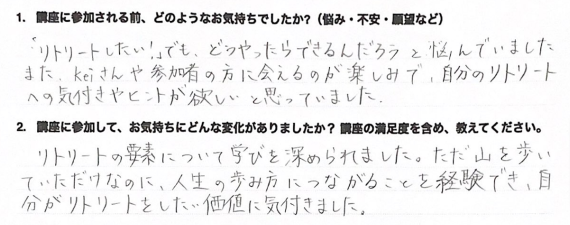 1. 講座に参加される前、どのようなお気持ちでしたか?（悩み・不安・願望など）
「リトリートしたい!」でも、どうやったらできるんだろうと悩んでいました
また、Keiさんや参加者の方に会えるのが楽しみで、自分のリトリート
への気付きやヒントが欲しいと思っていました.
2. 講座に参加して、お気持ちにどんな変化がありましたか? 講座の満足度を含め、教えてください。
リトリートの要素について学びを深められました。ただ山を歩い
ていただけなのに、人生の歩み方につながることを経験でき、自
分がリトリートをしたい価値に気付きました。